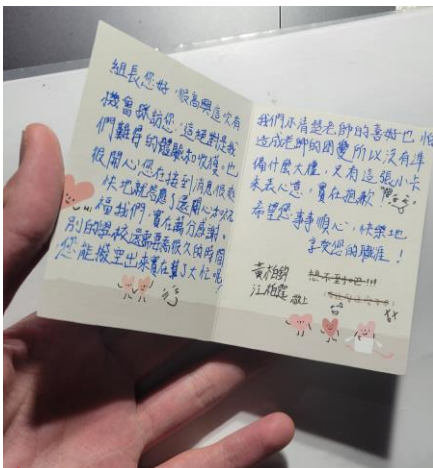 組長您好，很高興這次有
機會採訪您，這絕對是我
們難得的體驗和收穫，也
很開心您在接到消息很
快地就答應了
福我們，實在萬分感謝。
別的學校還需要喬很久的時間
您能撥空出來實在幫了大忙呢！
我們不清楚老師的喜好也怕
造成老師的困擾所以沒有準
備什麼大禮，只有這張小卡
來表心意，實在抱歉
希望您事事順心，快樂地
享受您的職涯！
黃柏
想不到吧!!!
江柏霆 敬上